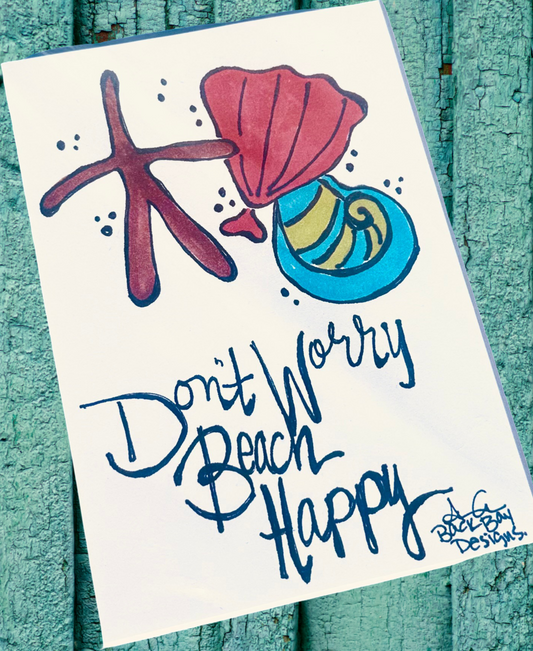 Don't Worry
Beach
Happy
Back Bay
Designs.